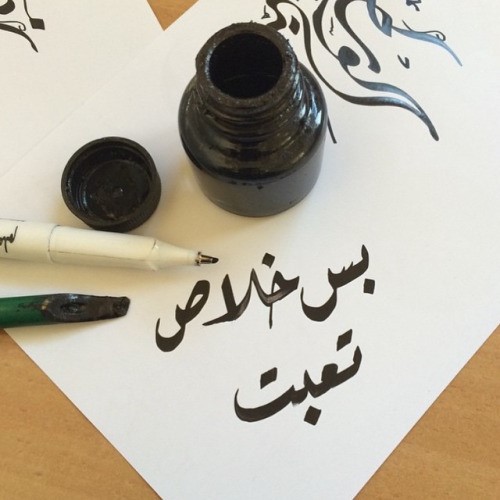 بس خلاص
تعبت